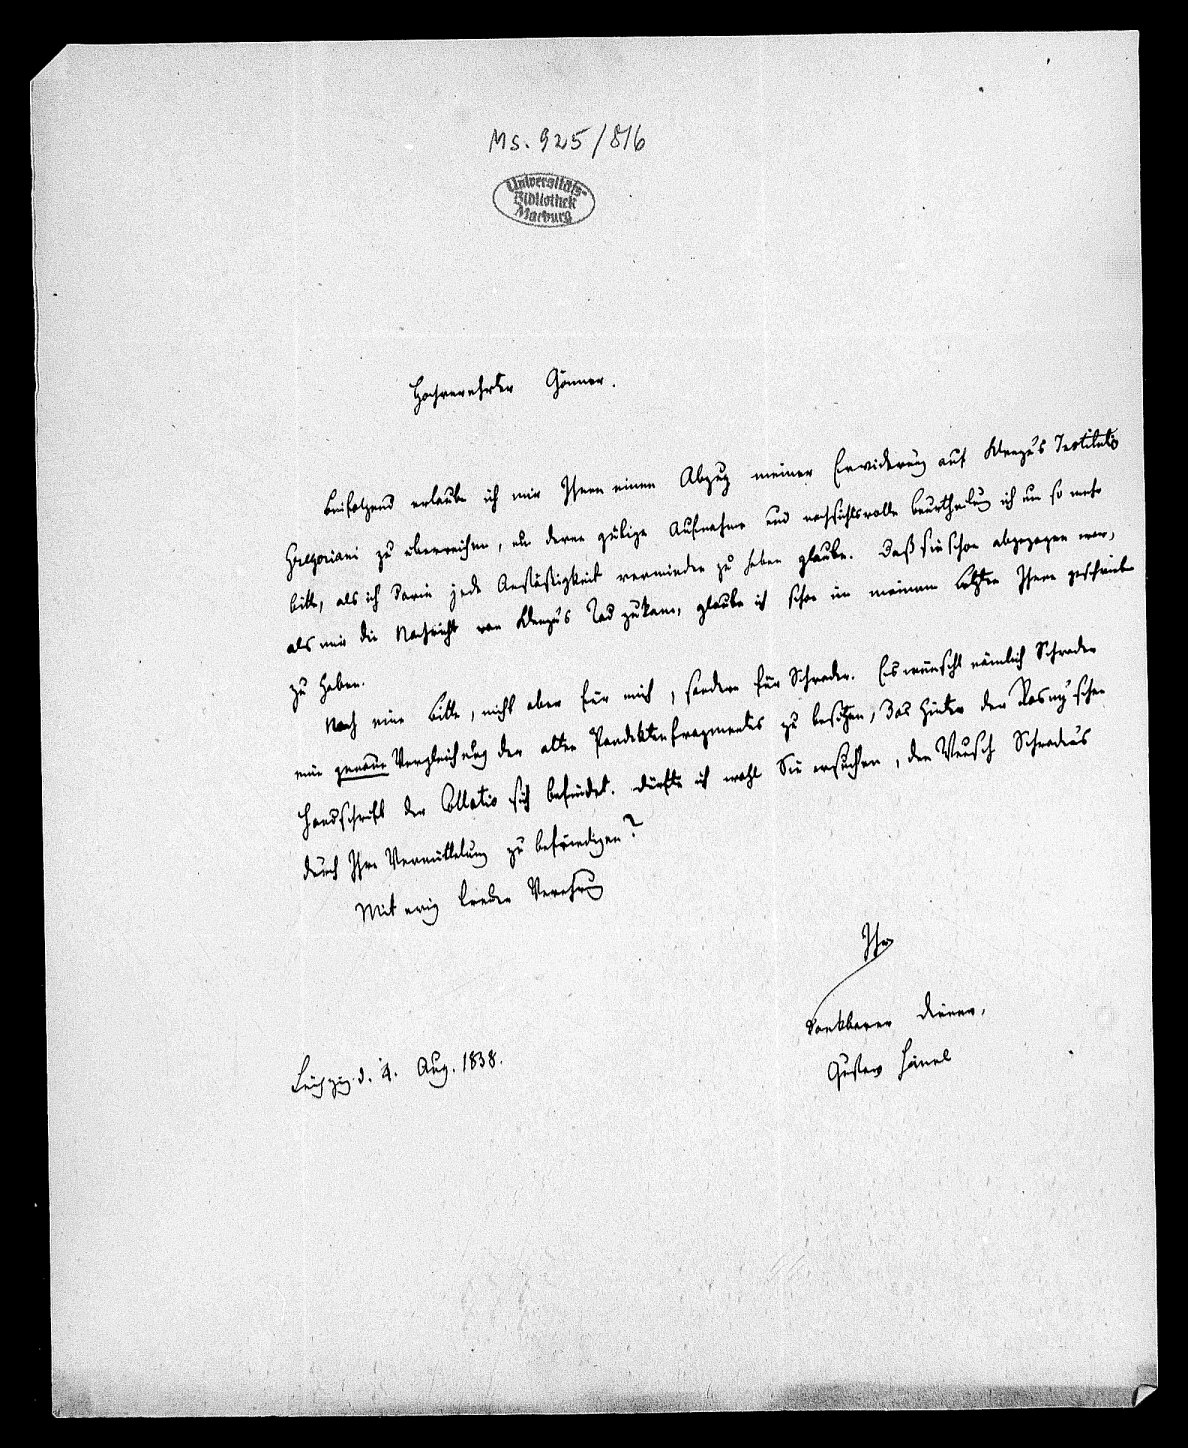 Ms. 925/816
Universitäts-
Bibliothek
Marburg
Hochverehrter Gönner.
Beifolgend erlaube ich mir Ihnen einen Abzug meiner Erwiderung auf Klenze's Institutio
Gregoriani zu überreichen, um deren gütige Aufnahme und nachsichtsvolle Beurtheilung ich um so mehr
bitte, als ich darin jede Anstößigkeit vermieden zu haben glaube. Daß sie schon abgezogen war,
als mir die Nachricht von Klenze's Tod zukam, glaube ich schon in meinem letzten Ihnen geschrieben
zu haben.
Noch eine Bitte, nicht aber für mich, sondern für Schrader. Es wünscht nämlich Schrader
eine genaue Vergleichung des alten Pandektenfragmentes zu besitzen, das hinter der Rosny'schen
Handschrift der Collatio sich befindet. Dürfte ich wohl Sie ersuchen, den Wunsch Schrader's
durch Ihre Vermittelung zu befriedigen?
Mit ewig treuer Verehrung
Ihr
dankbarer Diener,
Gustav Hänel
Leipzig d. 4. Aug. 1838.